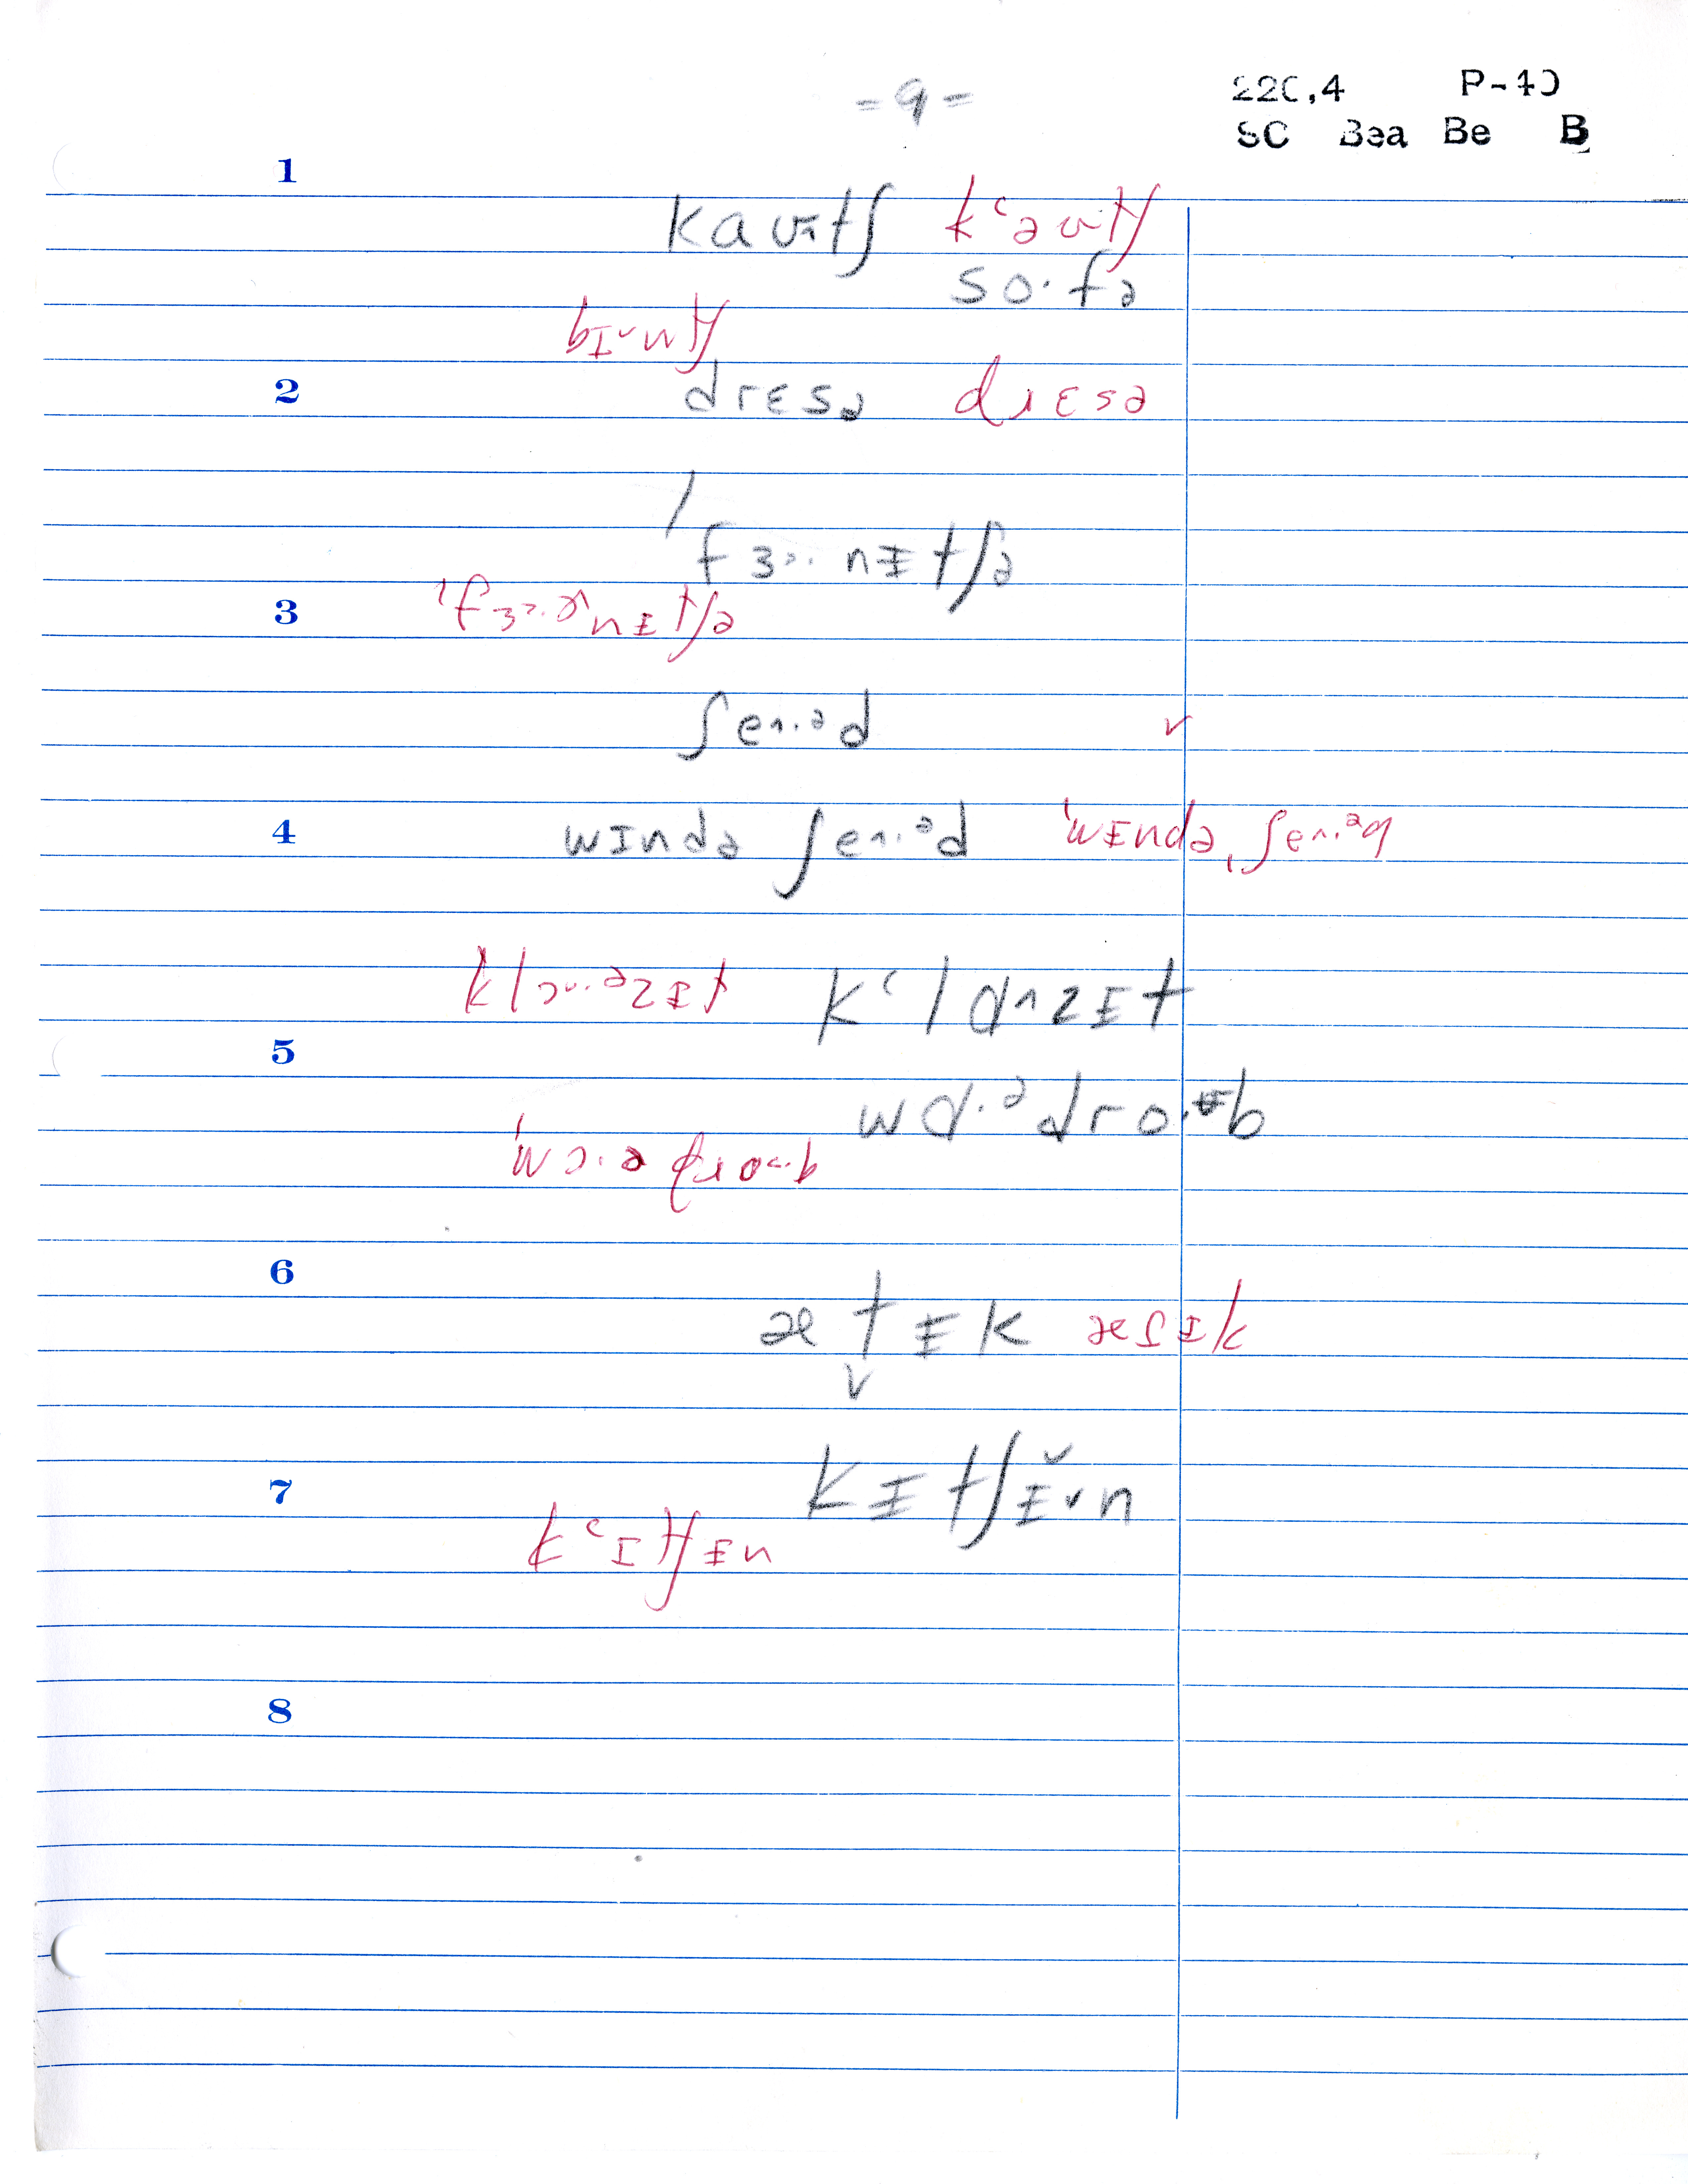 - 9 -
220,4 P-40
SC Bea Be B
1
kaʊ^tʃ kʿəʊtʃ
so·fə
bɪ˅ntʃ
2 drɛsə dɹɛsə
ˈfɜ˞·nɪtʃə
3 ˈfɜ˞·nɪtʃə
ʃe^·ᵊd ✓
4 wɪndə ʃe^·ᵊd ˈwɪndəˌʃe^·ᵊd
klɔ˅·ᵊzɪt kʿlɑ^zɪt
5
wɑ·ᵊdro·b
ˈwɔ·ə dɹo·b
6
ætɪk æɾɪk
7 kɪtʃɪ˅n
kʿɪtʃɪn
8